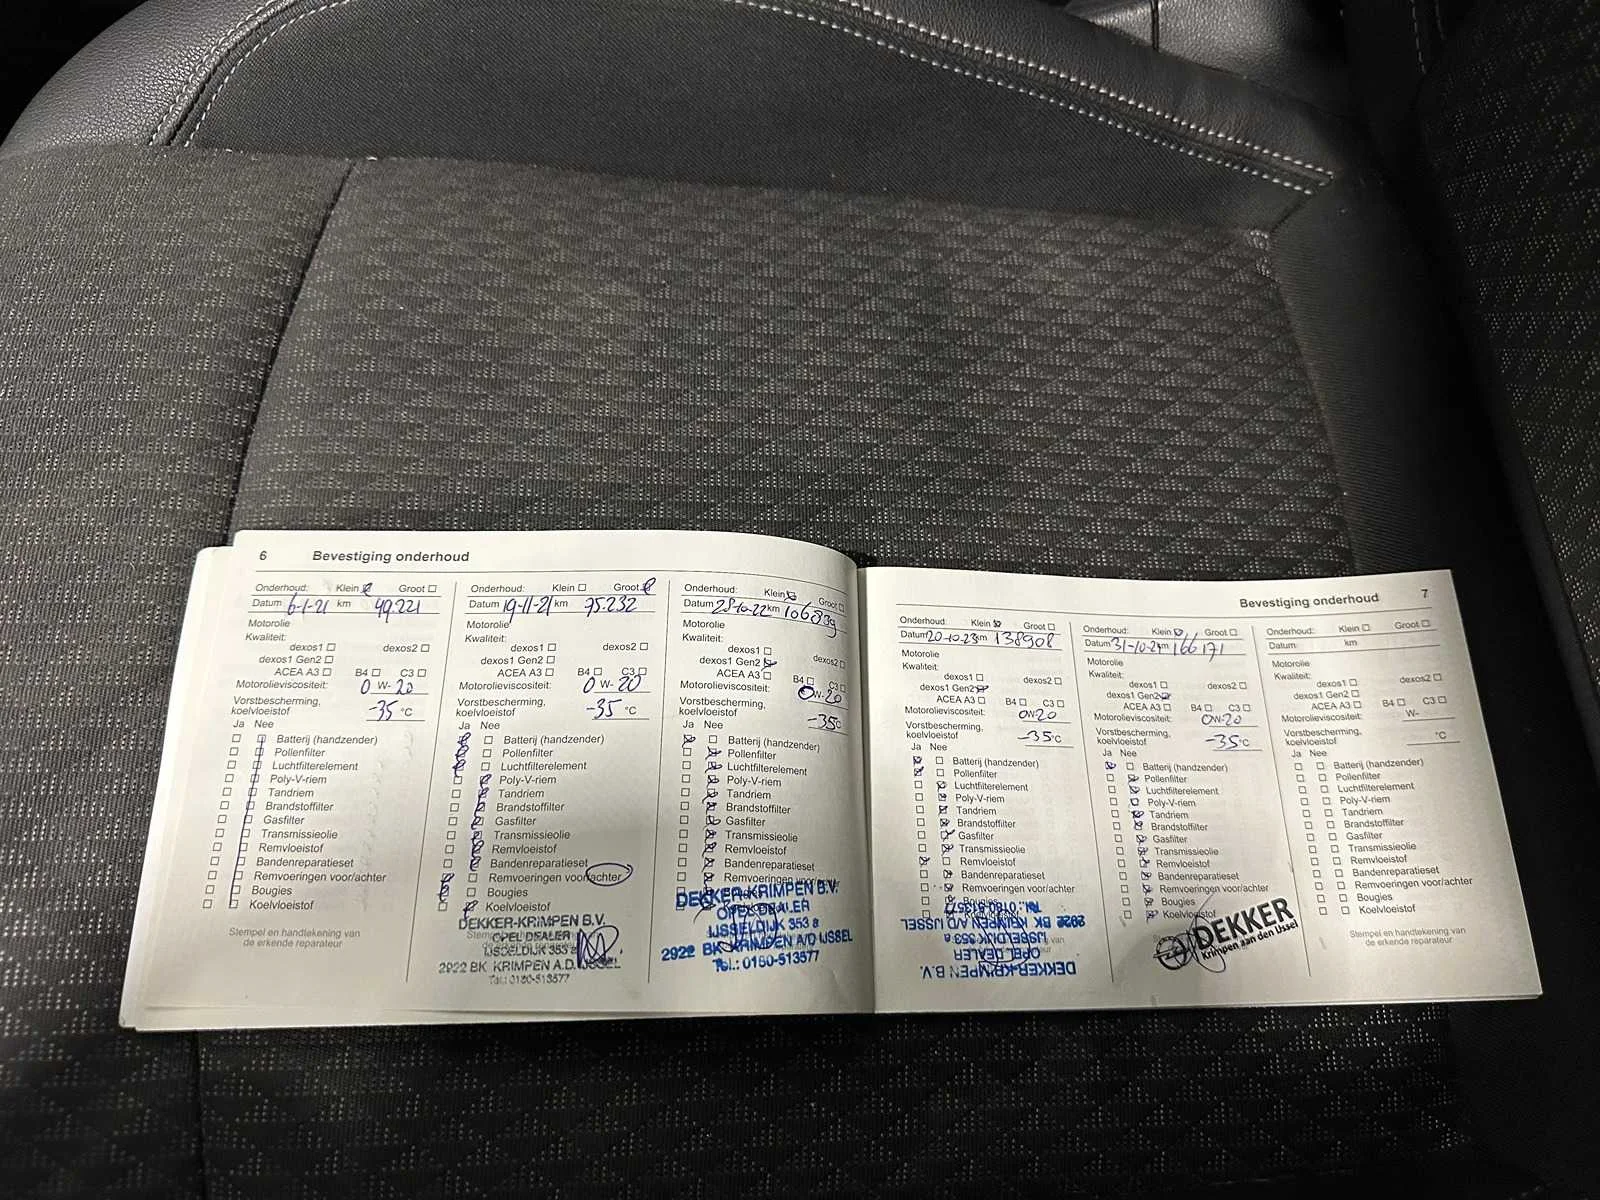 6 Bevestiging onderhoud
Onderhoud: Klein Groot
Datum 6-1-21 km 49.221
Motorolie
Kwaliteit:
dexos1 dexos2
dexos1 Gen2
ACEA A3 B4 C3
Motorolieviscositeit: 0 W-20
Vorstbescherming,
koelvloeistof -35 °C
Ja Nee
Batterij (handzender)
Pollenfilter
Luchtfilterelement
Poly-V-riem
Tandriem
Brandstoffilter
Gasfilter
Transmissieolie
Remvloeistof
Bandenreparatieset
Remvoeringen voor/achter
Bougies
Koelvloeistof
Stempel en handtekening van
de erkende reparateur
Onderhoud: Klein Groot
Datum 19-11-21 km 75.232
Motorolie
Kwaliteit:
dexos1 dexos2
dexos1 Gen2
ACEA A3 B4 C3
Motorolieviscositeit: 0 W-20
Vorstbescherming,
koelvloeistof -35 °C
Ja Nee
Batterij (handzender)
Pollenfilter
Luchtfilterelement
Poly-V-riem
Tandriem
Brandstoffilter
Gasfilter
Transmissieolie
Remvloeistof
Bandenreparatieset
Remvoeringen voor/achter
Bougies
Koelvloeistof
DEKKER-KRIMPEN B.V.
OPEL DEALER
IJSSELDIJK 353 a
2922 BK KRIMPEN A.D. IJSSEL
Tel.: 0180-513577
Onderhoud: Klein Groot
Datum 28-10-22 km 106839
Motorolie
Kwaliteit:
dexos1
dexos1 Gen2 dexos2
ACEA A3 B4 C3
Motorolieviscositeit: 0W-20
Vorstbescherming,
koelvloeistof -35°C
Ja Nee
Batterij (handzender)
Pollenfilter
Luchtfilterelement
Poly-V-riem
Tandriem
Brandstoffilter
Gasfilter
Transmissieolie
Remvloeistof
Bandenreparatieset
Remvoeringen voor/achter
DEKKER-KRIMPEN B.V.
OPEL DEALER
IJSSELDIJK 353 a
2922 BK KRIMPEN A/D IJSSEL
Tel.: 0180-513577
Bevestiging onderhoud 7
Onderhoud: Klein Groot
Datum 20-10-23 km 138908
Motorolie
Kwaliteit:
dexos1 dexos2
dexos1 Gen2
ACEA A3 B4 C3
Motorolieviscositeit: 0W-20
Vorstbescherming,
koelvloeistof -35°C
Ja Nee
Batterij (handzender)
Pollenfilter
Luchtfilterelement
Poly-V-riem
Tandriem
Brandstoffilter
Gasfilter
Transmissieolie
Remvloeistof
Bandenreparatieset
Remvoeringen voor/achter
Bougies
DEKKER-KRIMPEN B.V.
OPEL DEALER
IJSSELDIJK 353 a
2922 BK KRIMPEN A/D IJSSEL
Tel.: 0180-513577
Onderhoud: Klein Groot
Datum 31-10-24 km 166171
Motorolie
Kwaliteit:
dexos1 dexos2
dexos1 Gen2
ACEA A3 B4 C3
Motorolieviscositeit: 0W-20
Vorstbescherming,
koelvloeistof -35°C
Ja Nee
Batterij (handzender)
Pollenfilter
Luchtfilterelement
Poly-V-riem
Tandriem
Brandstoffilter
Gasfilter
Transmissieolie
Remvloeistof
Bandenreparatieset
Remvoeringen voor/achter
Bougies
Koelvloeistof
DEKKER
Krimpen aan den IJssel
Onderhoud: Klein Groot
Datum: km
Motorolie
Kwaliteit:
dexos1 dexos2
dexos1 Gen2
ACEA A3 B4 C3
Motorolieviscositeit: W-
Vorstbescherming,
koelvloeistof °C
Ja Nee
Batterij (handzender)
Pollenfilter
Luchtfilterelement
Poly-V-riem
Tandriem
Brandstoffilter
Gasfilter
Transmissieolie
Remvloeistof
Bandenreparatieset
Remvoeringen voor/achter
Bougies
Koelvloeistof
Stempel en handtekening van
de erkende reparateur